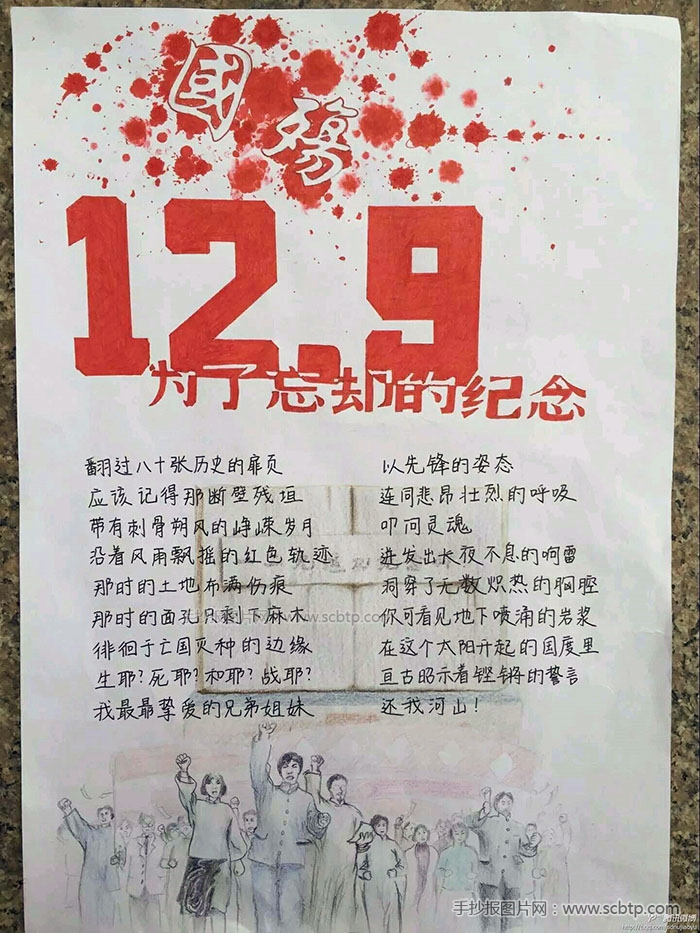 國殤
12.9
为了忘却的纪念
翻过八十张历史的扉页
应该记得那断壁残垣
带有刺骨朔风的峥嵘岁月
沿着风雨飘摇的红色轨迹
那时的土地布满伤痕
那时的面孔只剩下麻木
徘徊于亡国灭种的边缘
生耶?死耶?和耶?战耶?
我最最挚爱的兄弟姐妹
以先锋的姿态
连同悲昂壮烈的呼吸
叩问灵魂
迸发出长夜不息的响雷
洞穿了无数炽热的胸膛
你可看见地下喷涌的岩浆
在这个太阳升起的国度里
亘古昭示着铿锵的誓言
还我河山!
手抄报图片网 www.scbtp.com
手抄报图片网:www.scbtp.com
腾讯微博